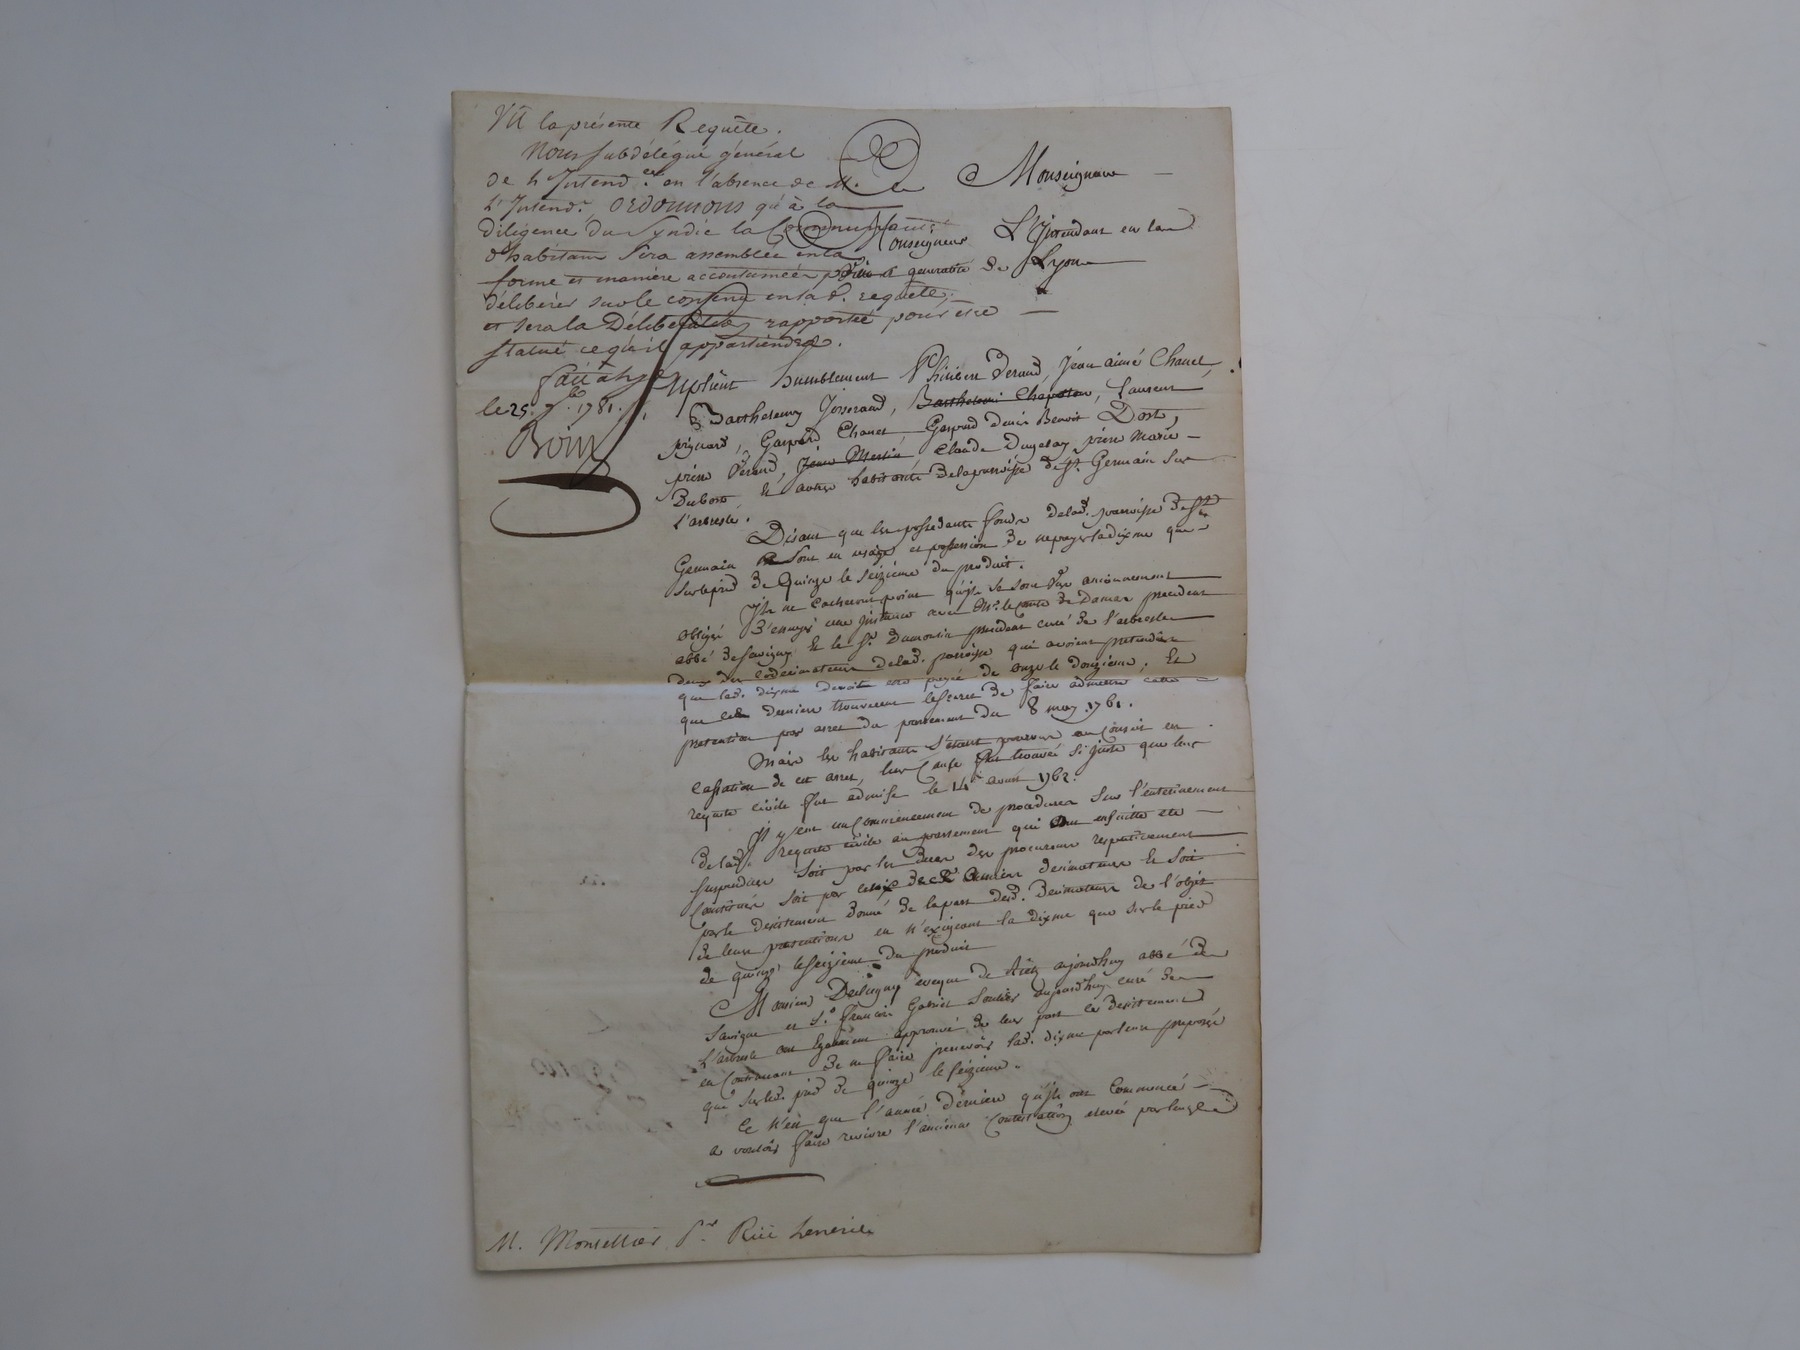 Vû la présente Requête.
Nous subdélégué général
de l'Intend.ce en l'absence de M.
L'Intend.t, ordonnons qu'à la
diligence du syndic la Communauté
d'habitans sera assemblée en la
forme et manière accoutumée p
délibérer sur le contenu en la d. requête,
et sera la Délibération rapportée pour être
statué ce qu'il appartiendra.
fait à Lyon
le 25. 7.bre 1781.
A Monseigneur
Monseigneur L'Intendant en la
ville & generalité de Lyon
Suplient humblement Philibert Peraud, Jean aimé Chanel,
Barthelemy Josserand, Barthelemi Chapolon, Laurent
pignard, Gaspard Chanel Gaspard denis Benoit Dost,
pierre Peraud, Jean Merlin, Claude Dugelay pierre Marie
Dubost & autres habitants de la parroisse de St. Germain sur
l'arbresle.
Disant que les possedants fonds de lad. parroisse de St
Germain sont en usage et possession de ne payer la dixme que
sur le pied de Quinze le seizieme du produit.
Ils ne cacheront point qu'ils se sont vus anciennement
obligés d'essuyer une instance avec Mr. le Comte de Damas precedent
abbé de savigny & le Sr. Dumontin precedent curé de l'arbresle
deux des codecimateurs de lad. parroisse qui avoient pretendu
que lad. dixme devoit etre payée de onze le douzieme, Et
que ces derniers trouverent le secret de faire admettre cette
pretention par arrest du parlement du 8 may 1761.
Mais les habitants s'étant pourvus au Conseil en
cassation de cet arrest, leur cause fut trouvée si juste que leur
requete civile fut admise le 14 avril 1762.
Il y eut un commencement de procedures sur l'enterinement
de lad. requete civile au parlement qui ont ensuitte été
suspendues soit par les deces des procureurs respectivement
constitués soit par celuy de ces derniers decimateurs & soit
par le desistement donné de la part desd. decimateurs de l'objet
de leurs pretentions en n'exigeant la dixme que sur le pied
de quinze le seizieme du produit
Monsieur De Clugny eveque de Riez aujourdhuy abbé de
Savigny et S.r François Gabriel aujourdhuy curé de
L'arbresle ont egalement approuvé de leur part ce desistement
en continuant de ne faire percevoir lad. dixme par leurs preposés
que sur led. pied de quinze le seizieme.
Ce n'est que l'année derniere qu'ils ont commencé
a vouloir faire revivre l'ancienne contestation elevée par leurs
M. Montellier P.r Rüe